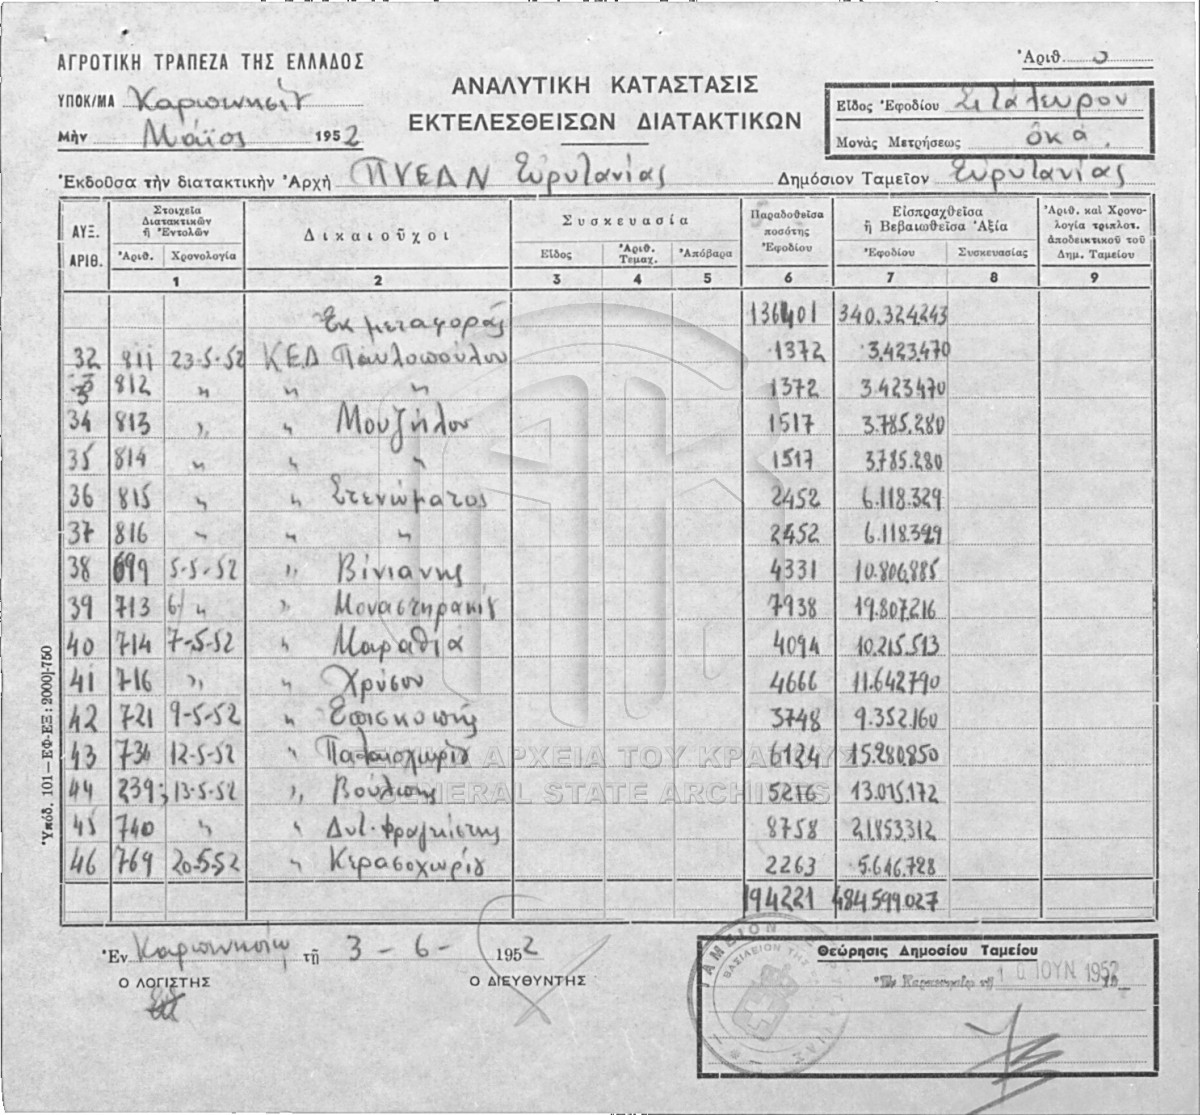 ΑΓΡΟΤΙΚΗ ΤΡΑΠΕΖΑ ΤΗΣ ΕΛΛΑΔΟΣ
ΥΠΟΚ/ΜΑ Καρπενησίου
Μὴν Μάϊος 1952
ΑΝΑΛΥΤΙΚΗ ΚΑΤΑΣΤΑΣΙΣ
ΕΚΤΕΛΕΣΘΕΙΣΩΝ ΔΙΑΤΑΚΤΙΚΩΝ
Ἀριθ. 5
Εἶδος Ἐφοδίου Σιτάλευρον
Μονὰς Μετρήσεως ὀκά.
Ἐκδοῦσα τὴν διατακτικὴν Ἀρχὴ ΠΥΕΔΝ Εὐρυτανίας Δημόσιον Ταμεῖον Εὐρυτανίας
ΑΥΞ. ΑΡΙΘ. Στοιχεῖα Διατακτικῶν ἢ Ἐντολῶν Δικαιοῦχοι Συσκευασία Παραδοθεῖσα ποσότης Ἐφοδίου Εἰσπραχθεῖσα ἢ Βεβαιωθεῖσα Ἀξία Ἀριθ. καὶ Χρονολογία τριπλοτ. ἀποδεικτικοῦ τοῦ Δημ. Ταμείου
Ἀριθ. Χρονολογία Εἶδος Ἀριθ. Τεμαχ. Ἀπόβαρα Ἐφοδίου Συσκευασίας
1 2 3 4 5 6 7 8 9
Ἐκ μεταφορᾶς 136401 340.324.243
32 811 23-5-52 ΚΕΔ Παυλοπούλου 1372 3.423.470
812 〃 〃 〃 1372 3.423.470
34 813 〃 〃 Μουζήλου 1517 3.785.280
35 814 〃 〃 〃 1517 3.785.280
36 815 〃 〃 Στενώματος 2452 6.118.329
37 816 〃 〃 〃 2452 6.118.329
38 699 5-5-52 〃 Βίνιανης 4331 10.806.885
39 713 6/ 〃 〃 Μοναστηρακίου 7938 19.807.216
40 714 7-5-52 〃 Μαραθιά 4094 10.215.513
41 716 〃 〃 Χρύσου 4666 11.642.790
42 721 9-5-52 〃 Επισκοπής 3748 9.352.160
43 734 12-5-52 〃 Παλαιοχωρίου 6124 15.280.850
44 239; 13-5-52 〃 Βούλπης 5216 13.015.172
45 740 〃 〃 Δυτ. Φραγκίστης 8758 21.853.312
46 769 20-5-52 〃 Κερασοχωρίου 2263 5.646.728
194221 484.599.027
ΓΕΝΙΚΑ ΑΡΧΕΙΑ ΤΟΥ ΚΡΑΤΟΥΣ
GENERAL STATE ARCHIVES
Ὑπόδ. 101 — ΕΦ-ΕΞ: 2000]-750
Ἐν Καρπενησίῳ τῇ 3 - 6 - 1952
Ο ΛΟΓΙΣΤΗΣ Ο ΔΙΕΥΘΥΝΤΗΣ
Θεώρησις Δημοσίου Ταμείου
Ἐν Καρπενησίῳ τῇ 10 ΙΟΥΝ 1952